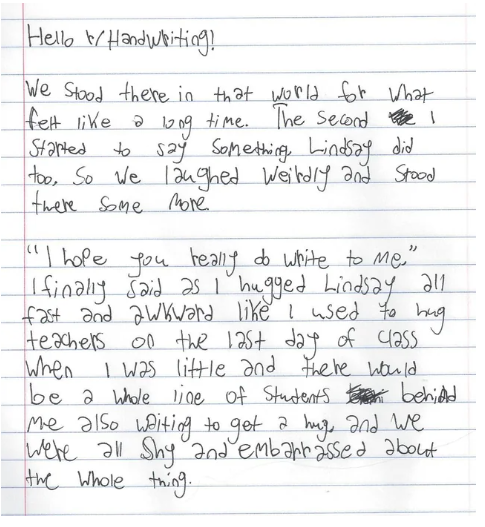 Hello r/Handwriting!
We stood there in that world for what
felt like a long time. The second I
started to say something, Lindsay did
too, so we laughed weirdly and stood
there some more.
"I hope you really do write to me."
I finally said as I hugged Lindsay all
fast and awkward like I used to hug
teachers on the last day of class
when I was little and there would
be a whole line of students behind
me also waiting to get a hug, and we
were all shy and embarrassed about
the whole thing.